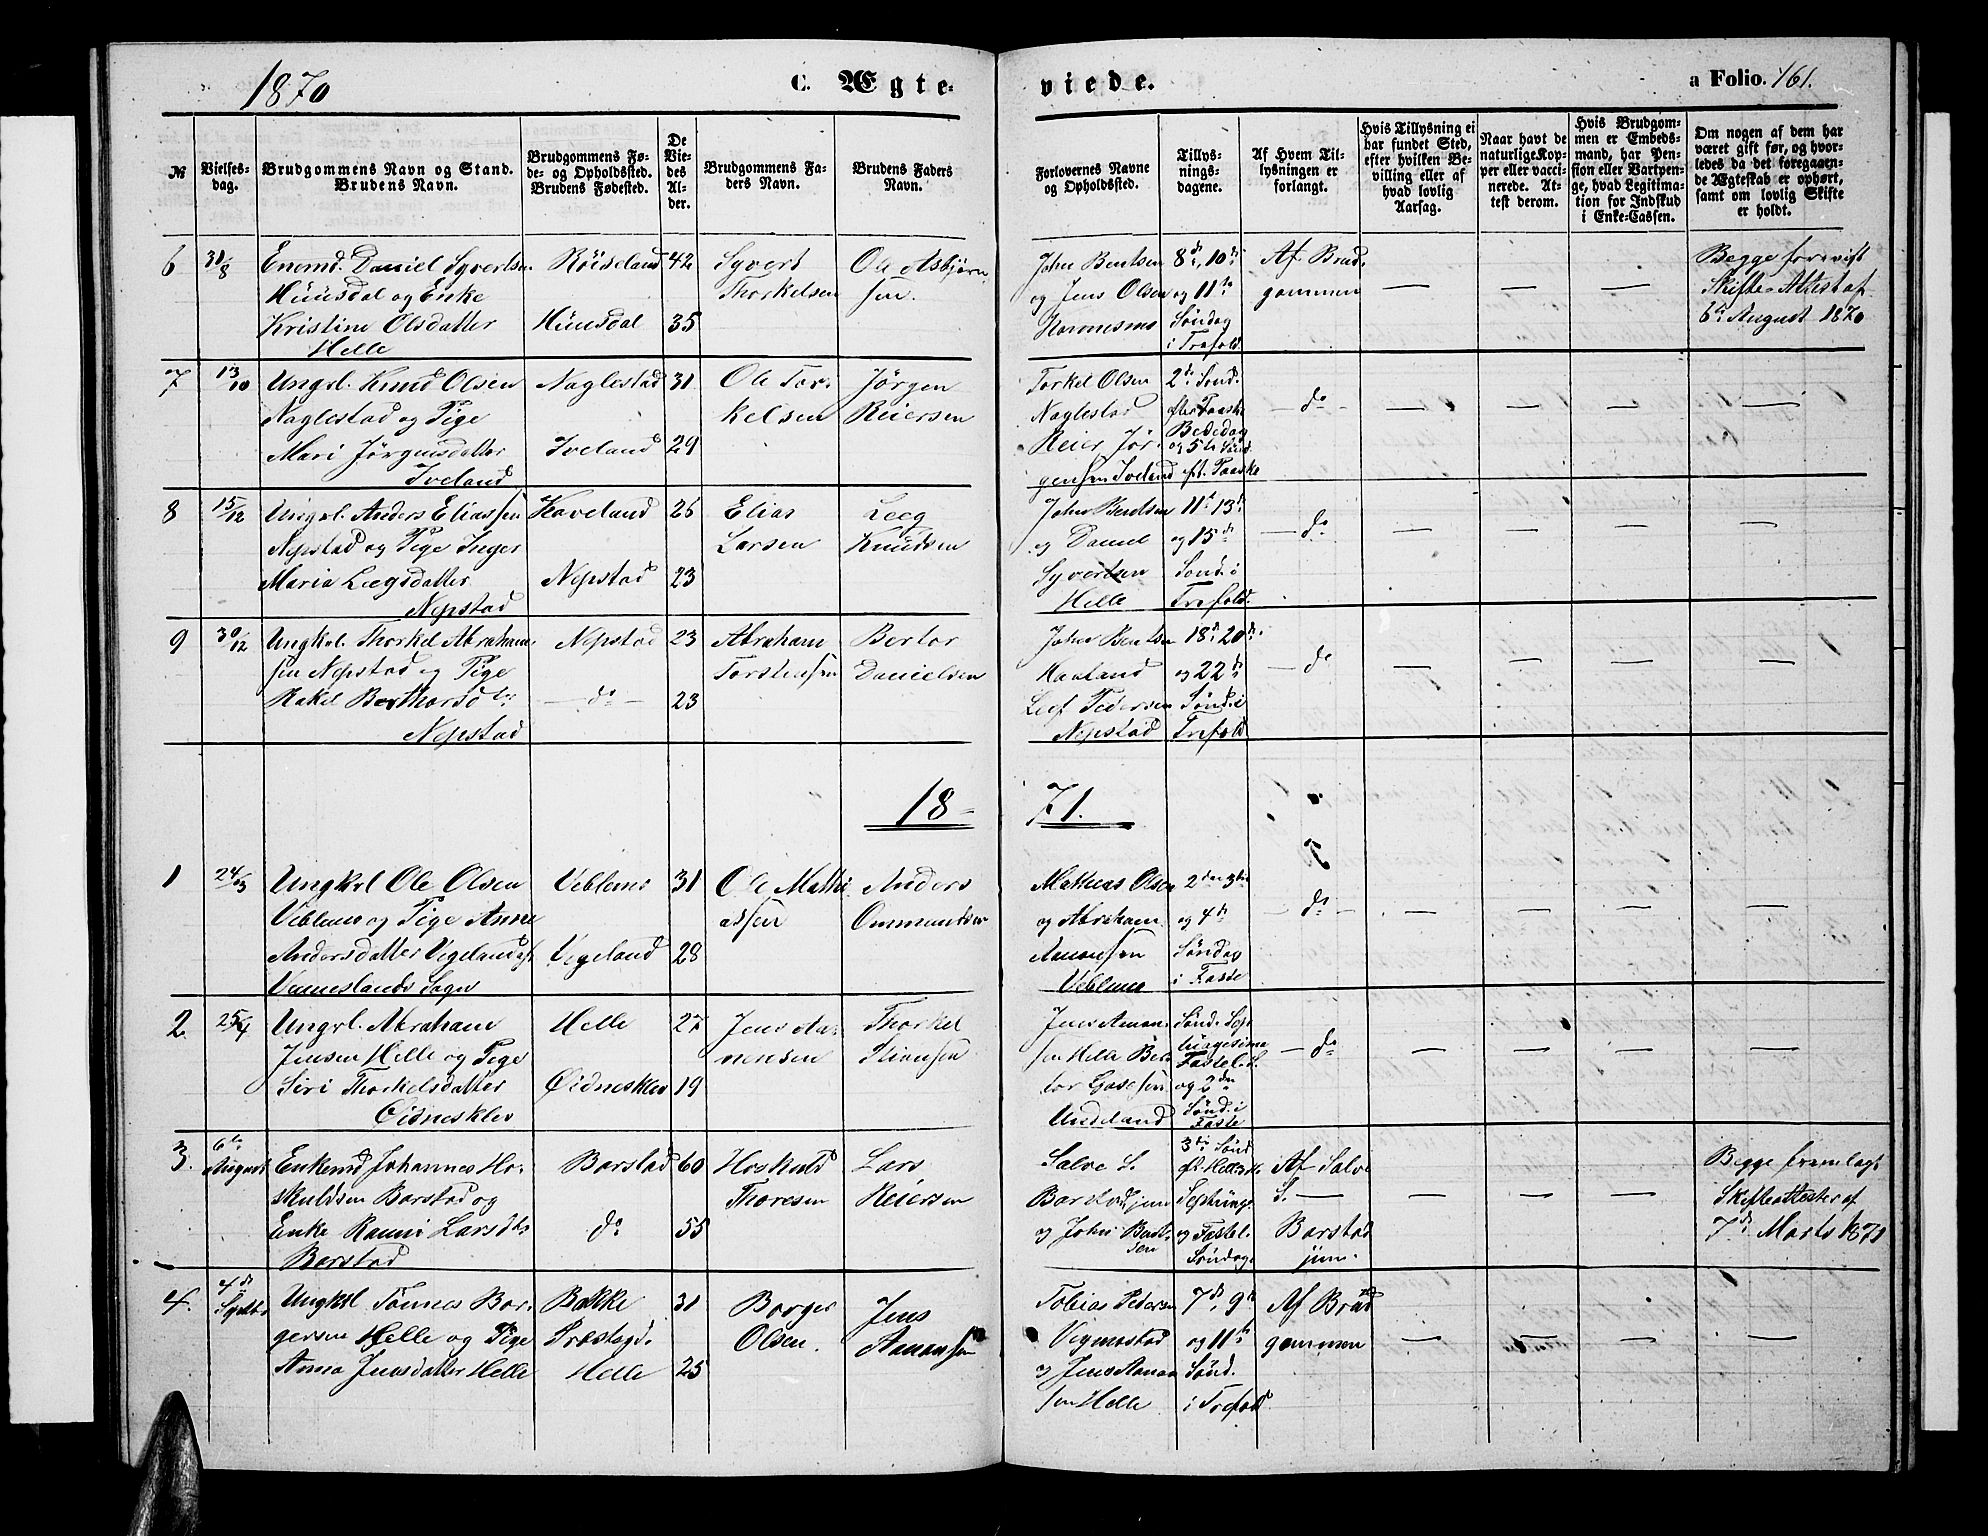 1870
C. Ægte-
viede.
a Folio. 161.
№
Vielses-
dag.
Brudgommens Navn og Stand.
Brudens Navn.
Brudgommens Fø-
de- og Opholdssted.
Brudens Fødested.
De
Vie-
des
Al-
der.
Brudgommens Fa-
ders Navn.
Brudens Faders
Navn.
Forlovernes Navne
og Opholdssted.
Tillys-
nings-
dagene.
Af Hvem Til-
lysningen er
forlangt.
Hvis Tillysning ei
har fundet Sted,
efter hvilken Be-
villing eller af
hvad lovlig
Aarsag.
Naar havt de
naturlige Kop-
per eller vacci-
nerede. At-
test derom.
Hvis Brudgom-
men er Embeds-
mand, har Pen-
sion eller Vartpen-
ge, hvad Legitima-
tion for Indskud
i Enke-Cassen.
Om nogen af dem har
været gift før, og hvor-
ledes da det foregaaen-
de Ægteskab er ophørt,
samt om lovlig Skifte
er holdt.
6
31/8
Enemd. Daniel Syvertsen
Huusdal og Enke
Kristine Olsdatter
Helle
Röiseland
Huusdal
42
35
Syvert
Thorkelsen
Ole Asbjørn
sen.
John Bentsen
og Jens Olsen
8de, 10de
og 11te
Søndag
i Trefold.
Af Brud-
gommen
Begge forevist
Skifte-Attest af
6te August 1870
7
13/10
Ungkl. Knud Olsen
Naglestad og Pige
Mari Jörgensdatter
Iveland
Naglestad
Iveland
31
29
Ole Tor-
kelsen
Jörgen
Reiersen
Torkel Olsen
Naglestad
Reier Jör-
gensen Iveland
2de Sönd.
efter Paaske
Bededag
og 5te Sönd.
ft. Paaske
do
8
15/12
Ungkl. Anders Eliassen
Nepstad og Pige Inger
Maria Leegsdatter
Nepstad
Haveland
Nepstad
26
23
Elias
Larsen
Leeg
Knudsen
John Bentsen
og Daniel
Syvertsen
Helle
11te 13de
og 15de
Sönd. i
Trefold.
do
9
30/12
Ungkl. Thorkel Abraham-
sen Nepstad og Pige
Rakel Berthorsdtr.
Nepstad
Nepstad
do
23
23
Abraham
Torstensen
Bertor
Danielsen
John Bentsen
Haaland
Leef Pedersen
Nepstad
18de 20de
og 22de
Sönd. i
Trefold
do
18-
71.
1
24/3
Ungkl Ole Olsen
Veblemo og Pige Anne
Andersdatter Vegeland af
Venneslands Sogn
Veblemo
Vegeland
31
28
Ole Mathi
assen
Anders
Ommundsen
Mathias Olsen
og Abraham
Aanensen
Veblemo
2den 3die
og 4de
Søndag
i Faste
do
2
25/4
Ungkl. Abraham
Jensen Helle og Pige
Siri Thorkelsdatter
Eidnesklev
Helle
Eidnesklev
27
19
Jens Aa-
nensen
Thorkel
Stiansen
Jens Aanen-
sen Helle Ber-
tor
Undeland
Sönd. Sep-
tuagesima
Fastel. S.
og 2den
Sönd. i
Faste
do
3.
6te
August
Enkemd Johannes Ho-
skuldsen Barstad og
Enke Ranni Larsdtr
Barstad
Barstad
do
60
55
Hoskuld
Thoresen
Lars
Reiersen
Salve S.
Barstad jun
og John Bent-
sen
3die Sönd
Septuag.
og Fastel.
Søndag.
Af Salve
S.
Barstad
jun.
Begge fremlagt
Skifteattester af
7de Marts 1871
4.
4de
Septbr
Ungkl Tönnes Bor-
gersen Helle og Pige
Anna Jensdatter Helle
Bakke
Præstegd.
Helle
31
25
Borger
Olsen.
Jens
Aanensen
Tobias Pedersen
Vigmostad
og Jens Aanen
sen Helle
7de, 9de
og 11te
Sönd.
i Trefold
Af Brud
gommen